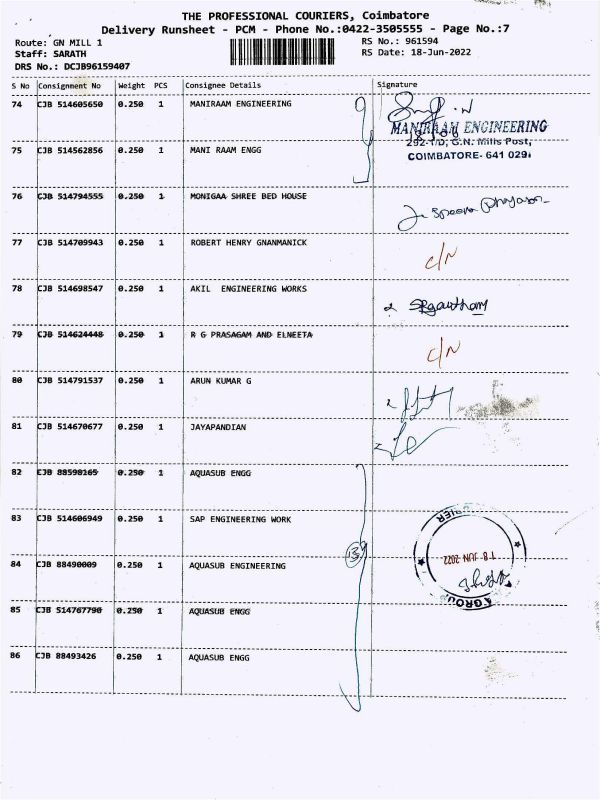 THE PROFESSIONAL COURIERS, Coimbatore
Delivery Runsheet - PCM - Phone No.:0422-3505555 - Page No.:7
Route: GN MILL 1 RS No.: 961594
Staff: SARATH RS Date: 18-Jun-2022
DRS No.: DCJB96159407
S No Consignment No Weight PCS Consignee Details Signature
74 CJB 514605650 0.250 1 MANIRAAM ENGINEERING
MANIRAAM ENGINEERING
292-1/D, G.N. Mills Post,
COIMBATORE- 641 029.
75 CJB 514562856 0.250 1 MANI RAAM ENGG
76 CJB 514794555 0.250 1 MONIGAA SHREE BED HOUSE
77 CJB 514709943 0.250 1 ROBERT HENRY GNANMANICK
C/N
78 CJB 514698547 0.250 1 AKIL ENGINEERING WORKS
79 CJB 514624448 0.250 1 R G PRASAGAM AND ELNEETA
C/N
80 CJB 514791537 0.250 1 ARUN KUMAR G
81 CJB 514670677 0.250 1 JAYAPANDIAN
82 CJB 88598165 0.250 1 AQUASUB ENGG
83 CJB 514606949 0.250 1 SAP ENGINEERING WORK
84 CJB 88490009 0.250 1 AQUASUB ENGINEERING
13
18 JUN 2022
GROUP
85 CJB 514767790 0.250 1 AQUASUB ENGG
86 CJB 88493426 0.250 1 AQUASUB ENGG